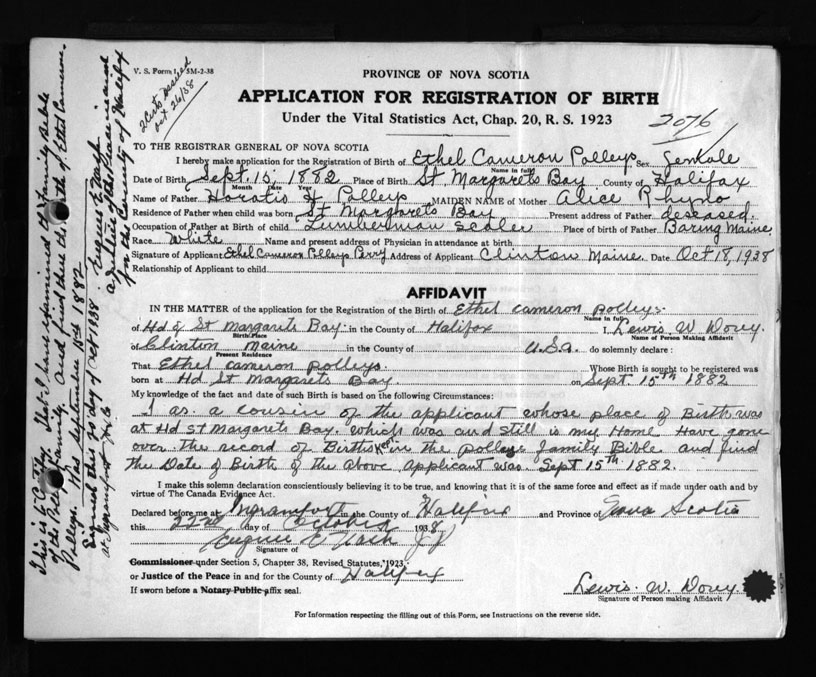 V. S. Form 1, 5M-2-38
2 Certs issued
Oct 26/38
PROVINCE OF NOVA SCOTIA
APPLICATION FOR REGISTRATION OF BIRTH
Under the Vital Statistics Act, Chap. 20, R. S. 1923
2076
TO THE REGISTRAR GENERAL OF NOVA SCOTIA
I hereby make application for the Registration of Birth of Ethel Cameron Polleys Sex Female
Name in full
Date of Birth Sept. 15, 1882 Place of Birth St. Margarets Bay County of Halifax
Month Date Year
Name of Father Horatis H Polleys MAIDEN NAME of Mother Alice Rhyno
Residence of Father when child was born St Margarets Bay Present address of Father deseased.
Occupation of Father at Birth of child Lumberman Scaler Place of birth of Father Baring Maine
Race White Name and present address of Physician in attendance at birth
Signature of Applicant Ethel Cameron Polleys Perry Address of Applicant Clinton Maine Date Oct 18, 1938
Relationship of Applicant to child
AFFIDAVIT
IN THE MATTER of the application for the Registration of the Birth of Ethel Cameron Polleys
Name in full
of Hd of St Margarets Bay in the County of Halifax I, Lewis W Dorey.
Birth Place Name of Person Making Affidavit
of Clinton Maine in the County of U.S.a. do solemnly declare :
Present Residence
That Ethel Cameron Polleys Whose Birth is sought to be registered was
born at Hd St Margarets Bay. on Sept. 15th 1882
My knowledge of the fact and date of such Birth is based on the following Circumstances:
I as a cousin of the applicant whose place of Birth was
at Hd St Margarets Bay. which was and still is my Home. Have gone
over the record of Births Kept in the Polleys family Bible and find
the Date of Birth of the above applicant was. Sept 15th 1882.
I make this solemn declaration conscientiously believing it to be true, and knowing that it is of the same force and effect as if made under oath and by
virtue of The Canada Evidence Act.
Declared before me at in the County of Halifax and Province of Nova Scotia
this 22nd day of October 1938
Eugene C Nash J.P.
Signature of
Commissioner under Section 5, Chapter 38, Revised Statutes, 1923,
or Justice of the Peace in and for the County of Halifax
If sworn before a Notary Public affix seal.
Lewis. W. Dorey.
Signature of Person making Affidavit
For Information respecting the filling out of this Form, see Instructions on the reverse side.
This is to Certify that I have examined the Family Bible
of the Polleys Family, and find there the birth of Ethel Cameron
Polleys. Was September 15th 1882
Signed this 20 day of Oct 1938 Eugene C Nash
at a Justice of the Peace in and
for the County of Halifax